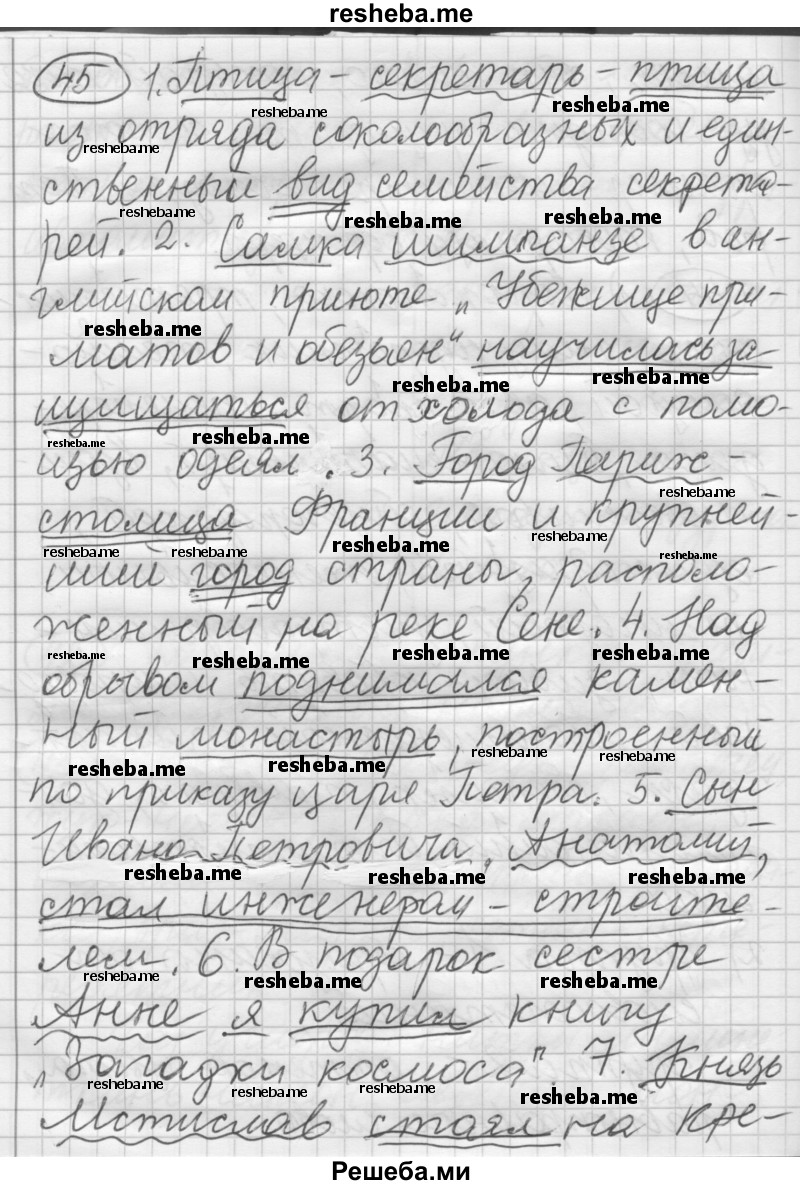 resheba.me
45 1. Птица - секретарь - птица
из отряда соколообразных и един-
ственный вид семейства секрета-
рей. 2. Самка шимпанзе в ан-
глийском приюте „Убежище при-
матов и обезьян“ научилась за-
щищаться от холода с помо-
щью одеял. 3. Город Париж -
столица Франции и крупней-
ший город страны, располо-
женный на реке Сене. 4. Над
обрывом поднимался камен-
ный монастырь, построенный
по приказу царя Петра. 5. Сын
Ивана Петровича, Анатолий,
стал инженером - строите-
лем. 6. В подарок сестре
Анне я купил книгу
„Загадки космоса". 7. Князь
Мстислав стоял на кре-
Решеба.ми